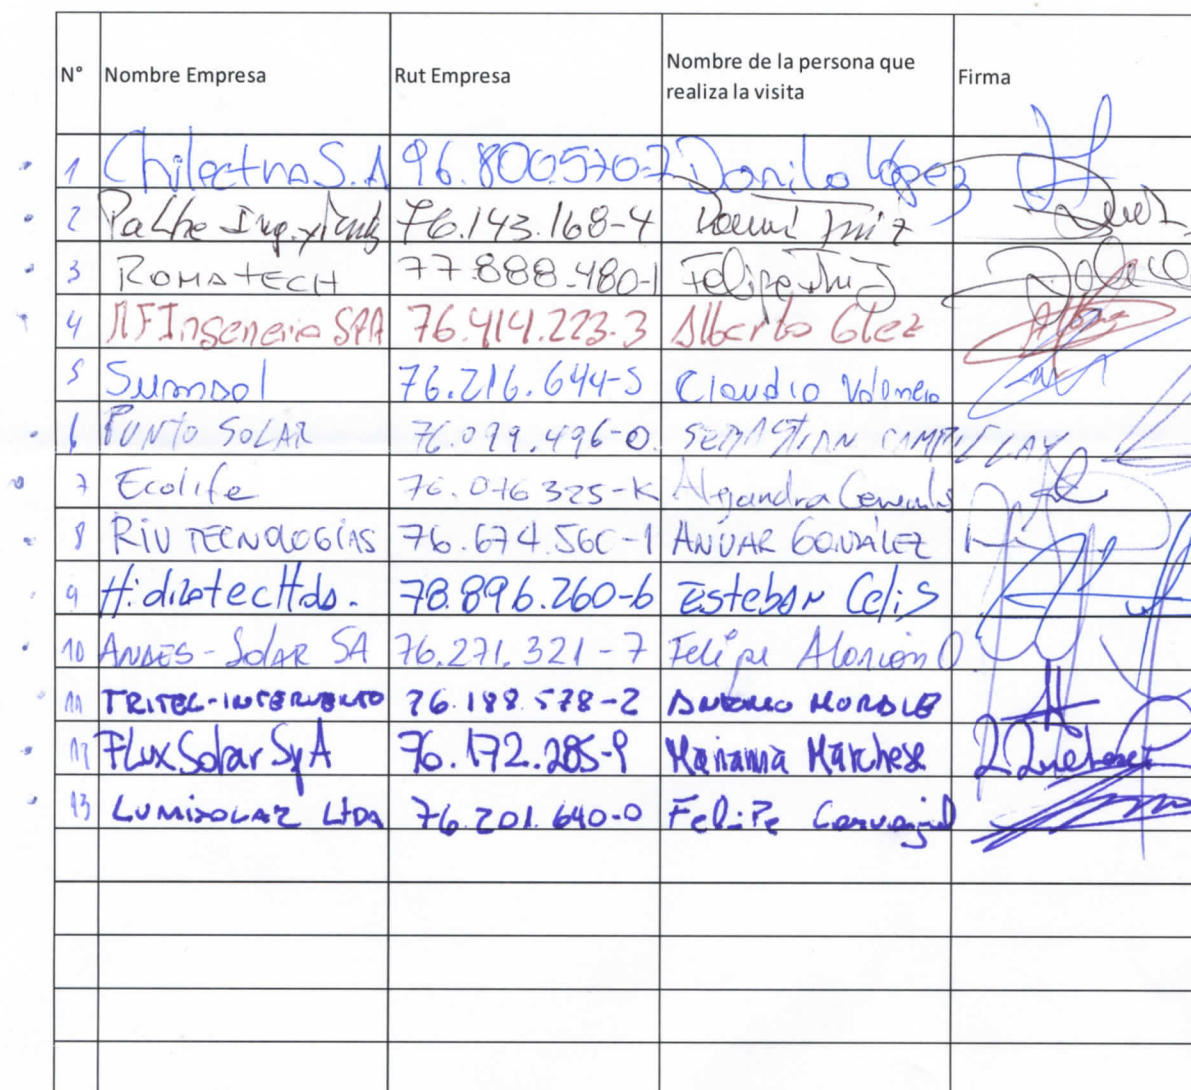 N° Nombre Empresa Rut Empresa Nombre de la persona que realiza la visita Firma
1 Chilectra S.A 96.800570-7 Danilo López
2 76.143.168-4
3 ROMATECH 77.888.480-1 Felipe
4 Ingeneria SPA 76.414.223-3 Alberto Glez
5 Sumsol 76.216.644-5 Claudio
6 PUNTO SOLAR 76.099.496-0. SEBASTIAN CAMPILLAY
7 Ecolife 76.076325-K Alejandra
8 RIV TECNOLOGÍAS 76.674.560-1 ANUAR GONZÁLEZ
9 Hidrotec ltda. 78.896.260-6 Esteban Celis
10 ANDES-SOLAR SA 76.271.321-7 Felipe
11 TRITEC-INTERVENTO 76.188.578-2 ANTONIO
12 Flux Solar SpA 76.172.285-9 Marianna Marchese
13 LUMISOLAR LtDA 76.201.640-0 Felipe Carvajal